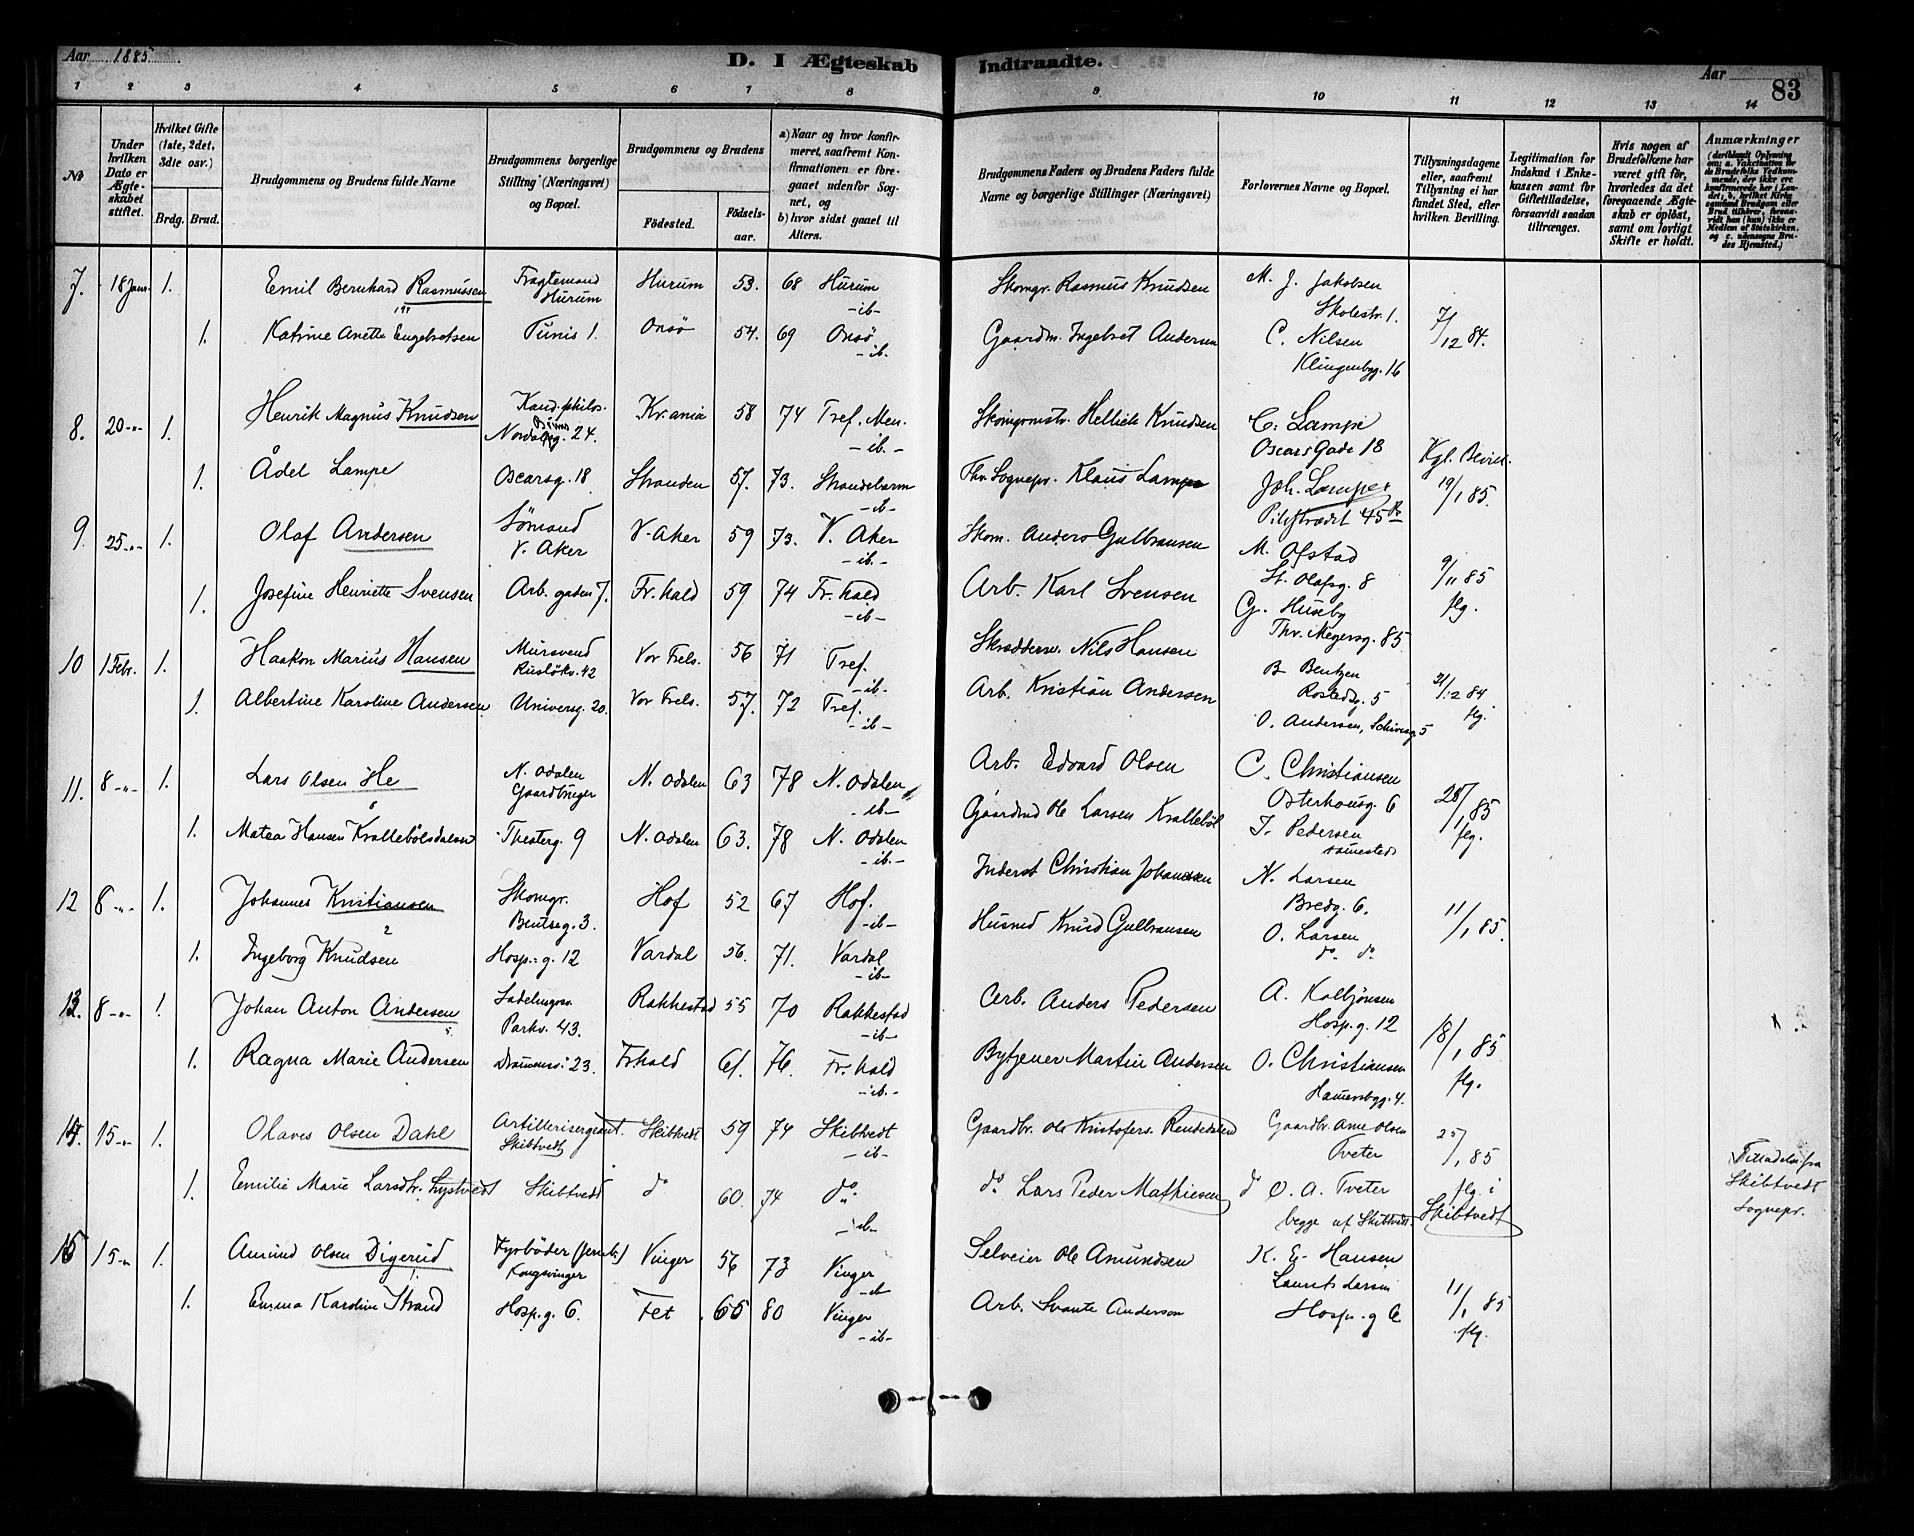 Aar 1885. D. I Ægteskab Indtraadte. Aar 83
1 2 3 4 5 6 7 8 9 10 11 12 13 14
No
Under hvilken Dato er Ægteskabet stiftet.
Hvilket Gifte (1ste, 2det, 3die osv.)
Brdg. Brud.
Brudgommens og Brudens fulde Navne
Brudgommens borgerlige Stilling (Næringsvei) og Bopæl.
Brudgommens og Brudens
Födested. Födselsaar.
a) Naar og hvor konfirmeret, saafremt Konfirmationen er foregaaet udenfor Sognet, og
b) hvor sidst gaaet til Alters.
Brudgommens Faders og Brudens Faders fulde Navne og borgerlige Stillinger (Næringsvei)
Forlovernes Navne og Bopæl.
Tillysningsdagene eller, saafremt Tillysning ei har fundet Sted, efter hvilken Bevilling.
Legitimation for Indskud i Enkekassen samt for Giftetilladelse, forsaavidt saadan tiltrænges.
Hvis nogen af Brudefolkene har været gift för, hvorledes da det foregaaende Ægteskab er oplöst, samt om lovligt Skifte er holdt.
Anmærkninger
7. 18 Janr. 1. Emil Bernhard Rasmussen Fragtemand Hurum Hurum 53. 68 Hurum -ib- Skomgr. Rasmus Knudsen M. J. Jakobsen Skolestr. 1. 7/12 84.
1. Katrine Anette Engebretsen Tunis 1. Onsö 54. 69 Onsö -ib. Gaardm. Ingebret Andersen C. Nilsen Klingenbgg. 16
8. 20-"- 1. Henrik Magnus Knudsen Kand. philos. Nordal Bruns g. 24. Kr.ania 58 74 Tref. Men. -ib.- Skomgrmstr. Hellick Knudsen C. Lampe Oscars Gade 18 Kgl. Bevill.
1. Ådel Lampe Oscarsg. 18 Stranden 57. 73. Strandebarm -ib- Fhv. Sognepr. Klaus Lampe Joh. Lampe Pilestrædet 45 19/1 85.
9. 25-"- 1. Olaf Andersen Sömand V. Aker V. Aker 59 73. V. Aker -ib.- Skom. Anders Gulbransen M. Ofstad St. Olafsg. 8 9/11 85 flg.
1. Josefine Henriette Svensen Arb. gaden 7. Fr.hald 59 74 Fr.hald -ib- Arb. Karl Svensen G. Huseby Thv. Megersg. 85
10 1 Febr. 1. Haakon Marius Hansen Mursvend Ruslökv. 42 Vor Frels. 56 71 Tref. -ib- Skrædderm. Nils Hansen B. Bentzen Rostedsg. 5 21/12 84 flg.
1. Albertine Karoline Andersen Universg. 20. Vor Frels. 57. 72 Tref. -ib- Arb. Kristian Andersen O. Andersen, Schivesg. 5
11. 8-"- 1. Lars Olsen He N. Odalen Gaardbruger N. Odalen 63 78 N. Odalen -ib- Arb. Edvard Olsen C. Christiansen Osterhausg. 6 25/1 85 flg.
1. Matea Hansen Krallebölsdalen Theaterg. 9 N. Odalen 63. 78 N. Odalen -ib.- Gaardmd Ole Larsen Kralleböl J. Pedersen sammesteds
12 8-"- 1. Johannes Kristiansen Skomgr. Bentseg. 3. Hof 52 67 Hof. -ib- Inderst Christian Johannsen N. Larsen Bredg. 6. 11/1 85.
1. Ingeborg Knudsen Hosp. g. 12 Vardal 56. 71. Vardal -ib- Husmd Knud Gulbransen O. Larsen do. do.
13. 8-"- 1. Johan Anton Andersen Parkv. 43. Rakkestad 55 70 Rakkestad -ib- Arb. Anders Pedersen A. Kolbjönsen Hosp. g. 12 18/1 85 flg.
1. Ragna Marie Andersen Drammensv. 23. Frhald 61. 76. Fr.hald -ib.- Bytjener Martin Andersen O. Christiansen Hammersbgg. 4.
14. 15-"- 1. Olaves Olsen Dahl Artillerisergeant. Skibtvedt Skibtvedt 59 74 Skibtvedt -ib- Gaardbr. Ole Kristofers. Rendedalen Gaardbr. Arne Olsen Tveter 25/1 85
1. Emilie Marie Larsdtr. Lystvedt Skibtvedt do 60. 74 do. -ib- do. Lars Peder Mathiesen do O. A. Tveter begge af Skibtvedt. flg. i Skibtvedt Tilladelse fra Skibtvedt Sognepr.
15 15-" 1. Amund Olsen Digerud Fyrböder (Jernb.) Kongsvinger Vinger 56 73 Vinger -ib- Selveier Ole Amundsen K. E. Hansen Laurits Larsen 11/1 85 flg.
1. Emma Karoline Strand Hosp. g. 6. Fet 65 80 Vinger -ib- Arb. Svante Anderson Hosp. g 6